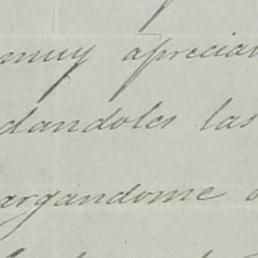 muy aprecia
dandoles las
argandome